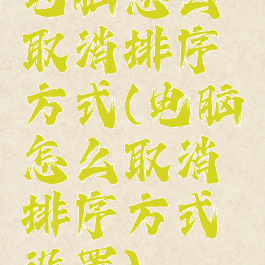 电脑怎么
取消排序
方式(电脑
怎么取消
排序方式
设置)